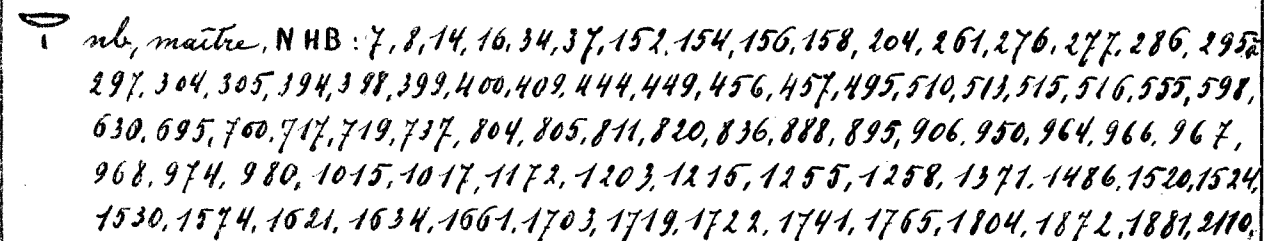 𓎟 nb, maître, NHB : 7, 8, 14, 16, 34, 37, 152, 154, 156, 158, 204, 261, 276, 277, 286, 295 à
297, 304, 305, 394, 398, 399, 400, 409, 444, 449, 456, 457, 495, 510, 513, 515, 516, 555, 598,
630, 695, 700, 717, 719, 737, 804, 805, 811, 820, 836, 888, 895, 906, 950, 964, 966, 967,
968, 974, 980, 1015, 1017, 1172, 1203, 1215, 1255, 1258, 1371, 1486, 1520, 1524,
1530, 1574, 1621, 1634, 1661, 1703, 1719, 1722, 1741, 1765, 1804, 1872, 1881, 2110,